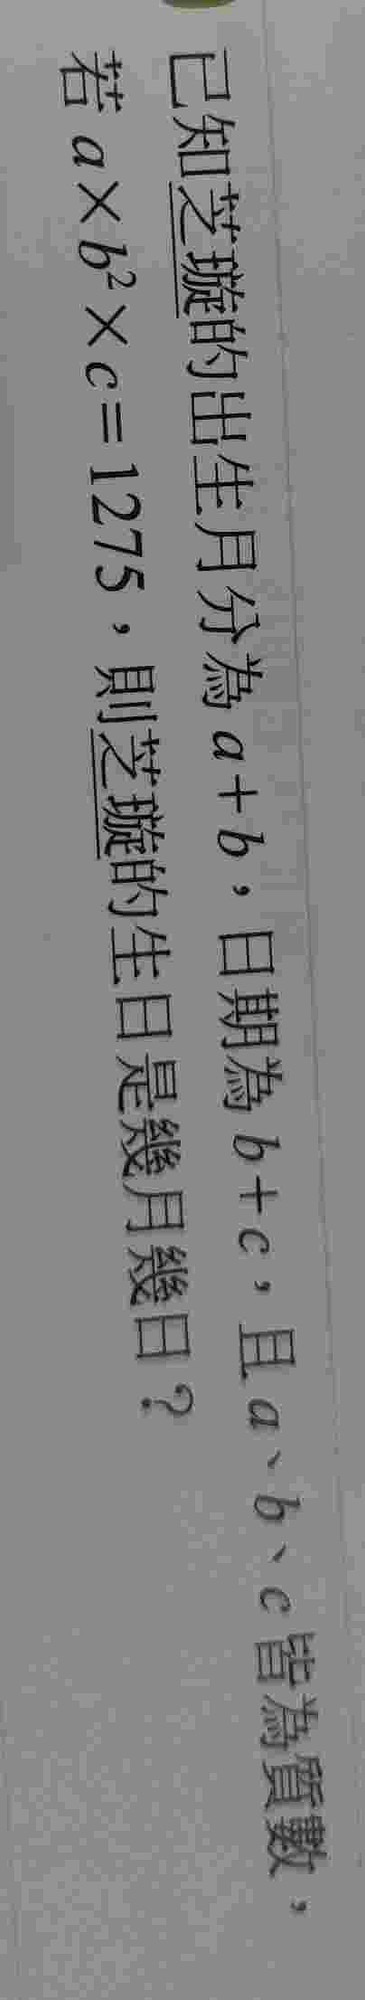 已知芝璇的出生月分為a+b，日期為b+c，且a、b、c皆為質數，
若a×b²×c=1275，則芝璇的生日是幾月幾日？